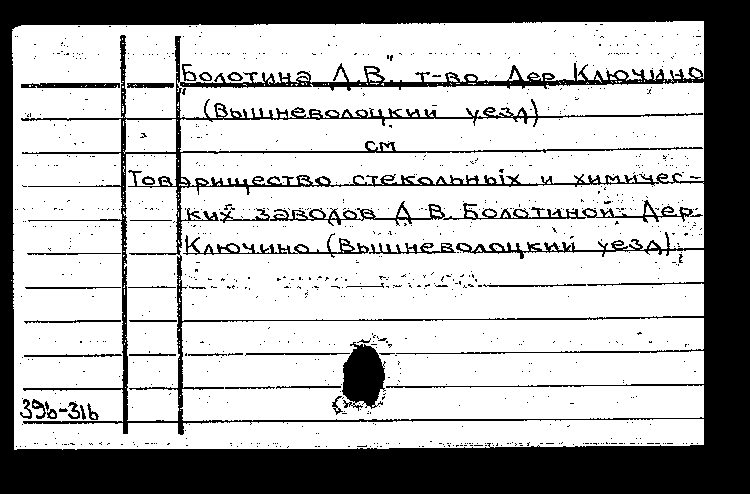 Болотина Д.В.", т-во. Дер. Ключино
(Вышневолоцкий уезд)
см
Товарищество стекольных и химичес-
ких заводов Д. В. Болотиной. Дер.
Ключино (Вышневолоцкий уезд)
39ь-31ь